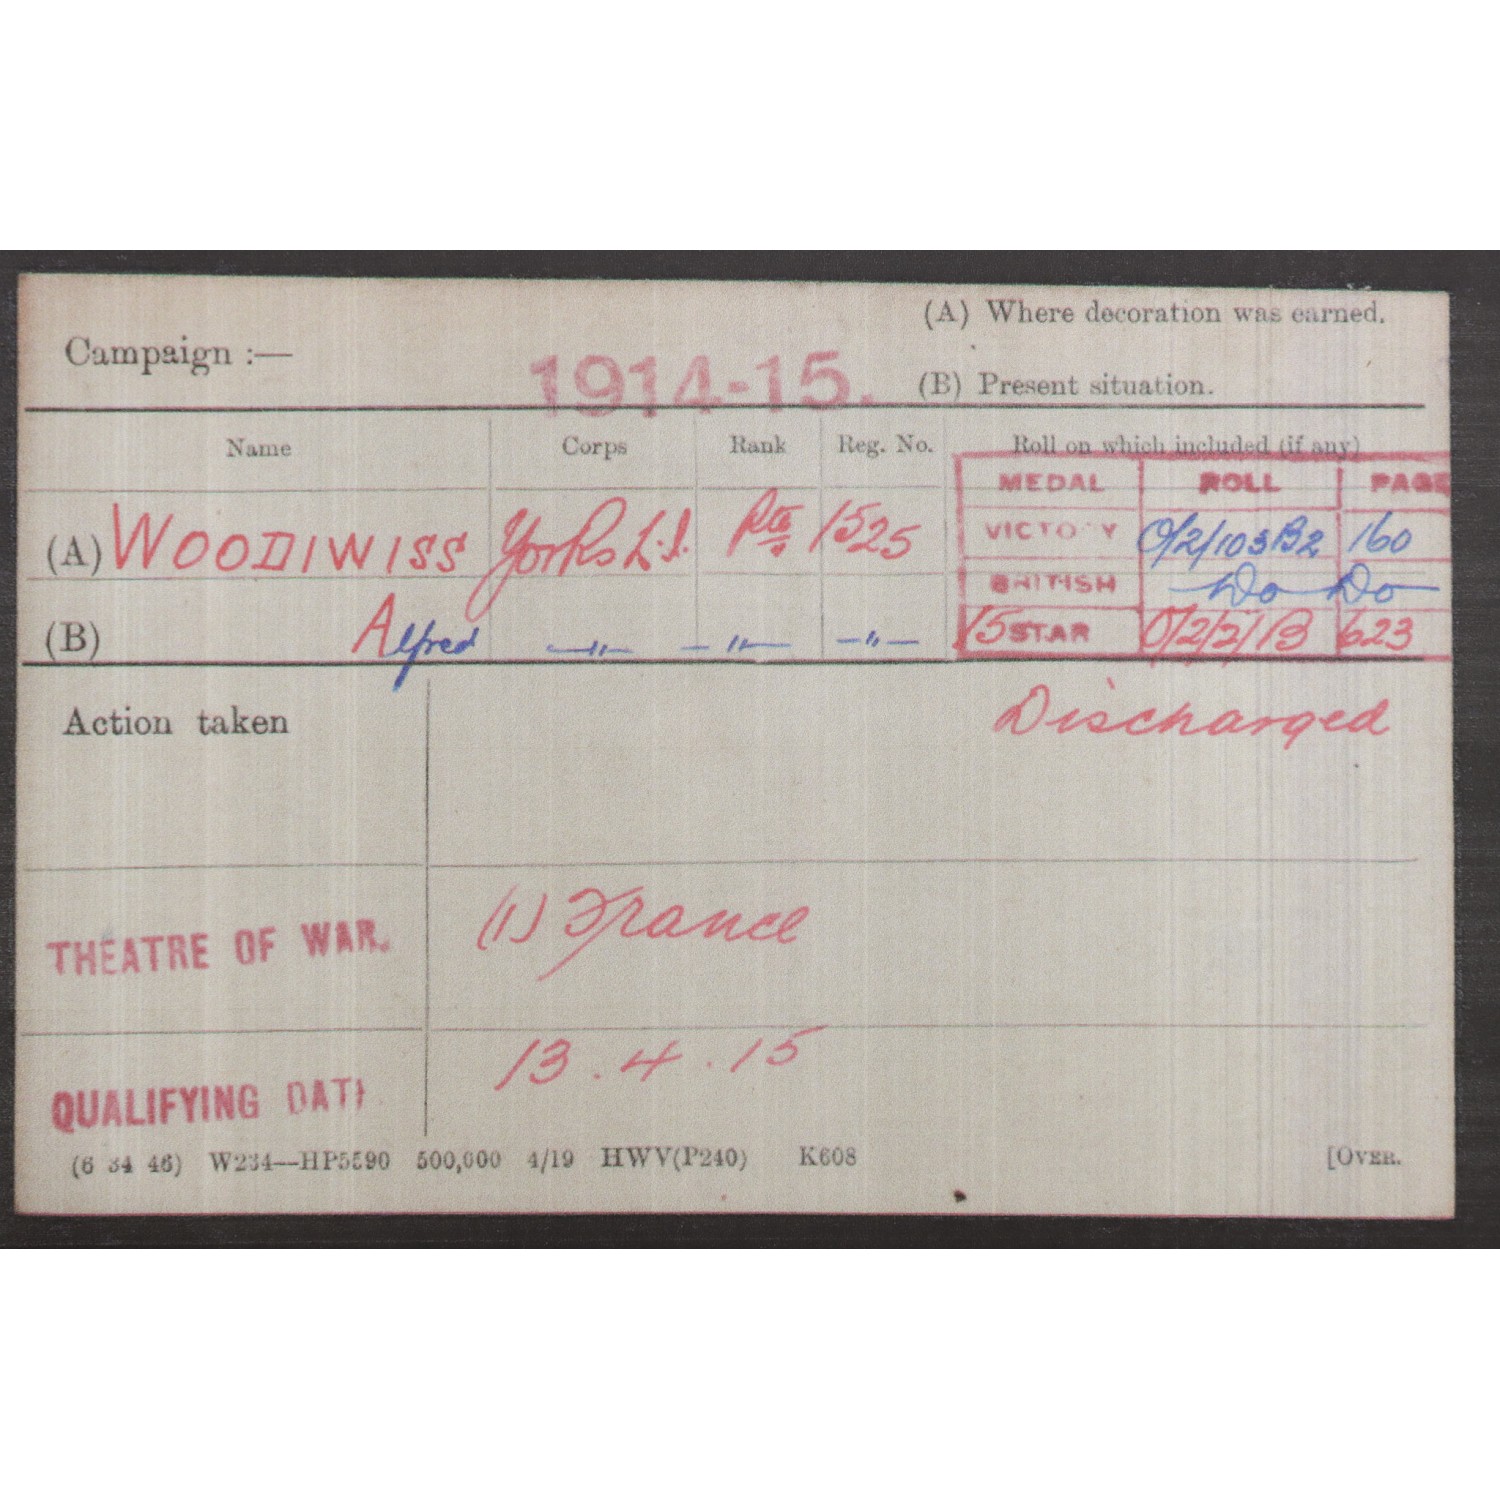 Campaign :—
1914-15.
(A) Where decoration was earned.
(B) Present situation.
Name Corps Rank Reg. No. Roll on which included (if any)
MEDAL ROLL PAGE
(A) WOODIWISS Yorks L.I. Pte 1525 VICTORY O/2/103B2 160
BRITISH Do Do
(B) Alfred —"— —"— —"— 15 STAR O/2/2/B 623
Action taken Discharged
THEATRE OF WAR. (1) France
QUALIFYING DATE 13.4.15
(6 34 46) W234—HP5590 500,000 4/19 HWV(P240) K608 [OVER.